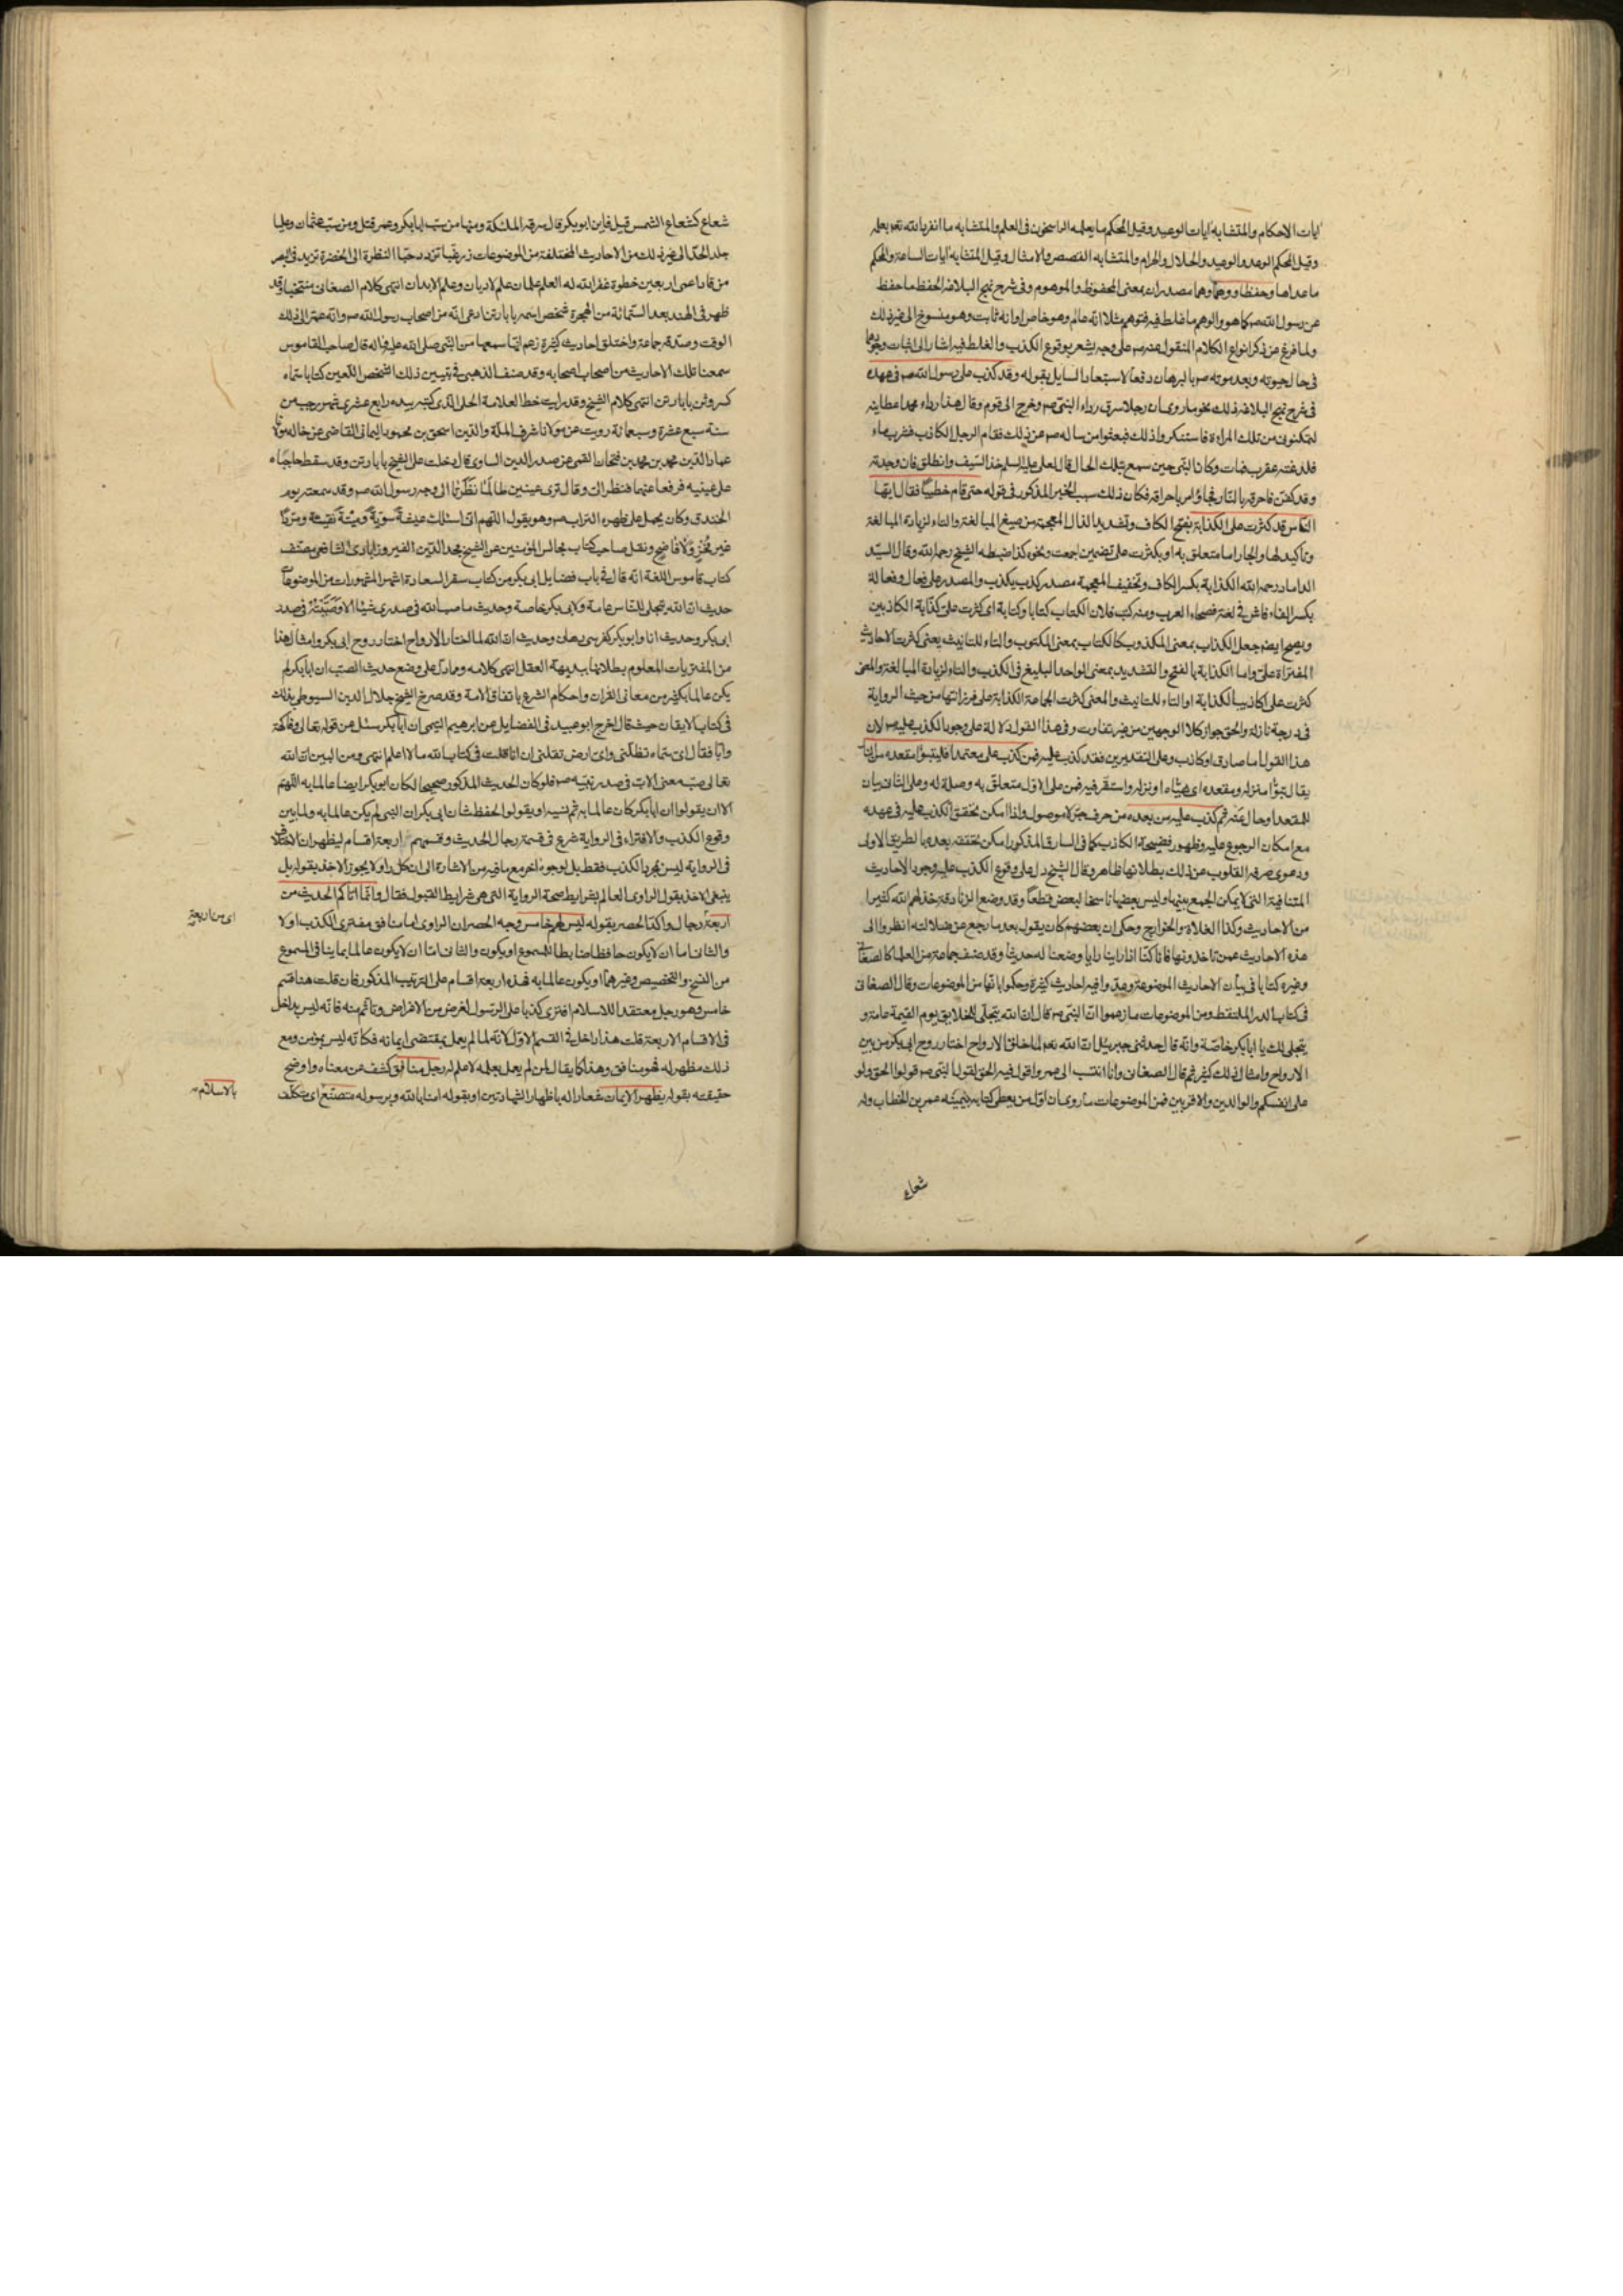 ايات الاحكام والمتشابه ايات الوعيد وقيل المحكم ما يعلمه الراسخون في العلم والمتشابه ما انفرد الله تعه بعلمه
وقيل المحكم الوعد والوعيد والحلال والحرام والمتشابه القصص والامثال وقيل المتشابه ايات الساعة والمحكم
ما عداها وحفظا ووهما وهما مصدران بمعنى المحفوظ والموهوم وفي شرح نهج البلاغة الحفظ ما حفظ
عن رسول الله صم كما هو والوهم ما غلط فيه فتوهم مثلا انه عام وهو خاص او انه ثابت وهو منسوخ الى غير ذلك
ولما فرغ عن ذكر انواع الكلام المنقول عنه صم على وجه يشعر بوقوع الكذب والغلط فيه اشار الى اثبات وقوعهما
في حال حيوته وبعد موته صم بالبرهان دفعا لاستبعاد السايل بقوله وقد كذب على رسول الله صم في عهده
في شرح نهج البلاغة ذلك نحو ما روى ان رجلا سرق رداء النبي صم وخرج الى قوم وقال هذا رداء محمد اعطانيه
لتمكنوني من تلك المراة فاستنكروا ذلك فبعثوا من ساله صم عن ذلك فقام الرجل الكاذب فشرب ماء
فلدغته عقرب فمات وكان النبي حين سمع بتلك الحال قال لعلي عليه السلم خذ السيف وانطلق فان وجدته
وقد كفن فاحرقه بالنار فجاؤ امر باحراقه فكان ذلك سبب الخبر المذكور في قوله حتى قام خطيبا فقال ايها
الناس قد كثرت على الكذابة بفتح الكاف وتشديد الذال المعجمة من صيغ المبالغة والتاء لزيادة المبالغة
وتاكيد لها والجار اما متعلق به او بكثرت على تضمين اجمعت ونحوه كذا ضبطه الشيخ رحمه الله وقال السيد
الداماد رحمه الله الكذابة بكسر الكاف وتخفيف المعجمة مصدر كذب يكذب والمصدر على فعال وفعالة
بكسر الفاء فاش في لغة فصحاء العرب ومنه كتب فلان الكتاب كتابا وكتابة اى كثرت على كذابة الكاذبين
ويصح ايضه جعل الكذاب بمعنى المكذوب كالكتاب بمعنى المكتوب والتاء للتانيث يعني كثرت الاحاديث
المفتراة على واما الكذابة بالفتح والتشديد بمعنى الواحد البليغ في الكذب والتاء لزيادة المبالغة والمعنى
كثرت على اكاذيب الكذابة او التاء للتانيث والمعنى كثرت الجماعة الكذابة على فمنزلتها من حيث الرواية
في درجة نازلة والحق جواز كلا الوجهين من غير تفاوت وفي هذا القول دلالة على وجود الكذب عليه صم لان
هذا القول اما صادق او كاذب وعلى التقديرين فقد كذب عليه فمن كذب على متعمدا فليتبوأ مقعده من النار
يقال تبوأ منزله ومقعده اى هيئاه او نزله واستقر فيه فمن على الاول متعلق به وصلة له وعلى الثاني بيان
للمقعد او حال عنه ثم كذب عليه من بعده من حرف جر لا موصول واذا امكن تحقق الكذب عليه في عهده
مع امكان الرجوع عليه وظهور فضيحة الكاذب كما في السارق المذكور امكن تحققه بعده بالطريق الاولى
ودعوى صرف القلوب عن ذلك بطلانها ظاهر وقال الشيخ دل على وقوع الكذب عليه وجود الاحاديث
المتنافية التي لا يمكن الجمع بينها وليس بعضها ناسخا لبعض قطعا وقد وضع الزنادقة خذلهم الله كثيرا
من الاحاديث وكذا الغلاة والخوارج وحكى ان بعضهم كان يقول بعد ما رجع عن ضلالته انظروا الى
هذه الاحاديث عمن تاخذونها فانا كنا اذا راينا رايا وضعنا له حديثا وقد صنف جماعة من العلماء كالصغاني
وغيره كتابا في بيان الاحاديث الموضوعة وعدوا فيه احاديث كثيرة وحكموا بانها من الموضوعات وقال الصغاني
في كتاب الدر الملتقط ومن الموضوعات ما زعموا ان النبي صم قال ان الله يتجلى للخلايق يوم القيمة عامة و
يتجلى لك يا ابا بكر خاصة وانه قال حدثني جبرئيل ان الله تعه لما خلق الارواح اختار روح ابي بكر من بين
الارواح وامثال ذلك كثير ثم قال الصغاني وانا انتسب الى عمر واقول فيه الحق لقول النبي صم قولوا الحق ولو
على انفسكم والوالدين والاقربين فمن الموضوعات ما روى ان اول من يعطى كتابه بيمينه عمر بن الخطاب وله
شعاع
شعاع كشعاع الشمس قيل فاين ابو بكر قال سرقه الملئكة ومنها من سب ابا بكر وعمر قتل ومن سب عثمان وعليا
جلد الحد الى غير ذلك من الاحاديث المختلفة من الموضوعات زر غبا تزدد حبا النظرة الى الخضرة تزيد في البصر
من قاد اعمى اربعين خطوة غفر الله له العلم علمان علم الاديان وعلم الابدان انتهى كلام الصغاني منتخبا وقد
ظهر في الهند بعد الستمائة من الهجرة شخص اسمه بابا رتن ادعى انه من اصحاب رسول الله صم وانه عمر الى ذلك
الوقت وصدقه جماعة واختلق احاديث كثيرة زعم انه سمعها من النبي صلى الله عليه واله قال صاحب القاموس
سمعنا تلك الاحاديث من اصحاب اصحابه وقد صنف الذهبي في تبيين ذلك الشخص اللعين كتابا سماه
كسر وثن بابا رتن انتهى كلام الشيخ وقد رايت خط العلامة الحلي الذي كتبه بيده رابع عشري شهر رجب من
سنة سبع عشرة وسبعمائة رويت عن مولانا شرف الملة والدين اسحق بن محمود اليماني القاضي عن خاله مولانا
عماد الدين محمد بن محمد بن فتحان القمي عن صدر الدين الساوي قال دخلت على الشيخ بابا رتن وقد سقط حاجباه
على عينيه فرفعا عنهما فنظر الى وقال ترى عينين طالما نظرتا الى وجه رسول الله صم وقد سمعته يوم
الخندق وكان يحمل على ظهره التراب صم وهو يقول اللهم انى اسئلك عيشة سوية وميتة نقيئة ومردا
غير مخز ولا فاضح ونقل صاحب كتاب مجالس المؤمنين عن الشيخ مجد الدين الفيروزابادي الشافعي مصنف
كتاب قاموس اللغة انه قال في باب فضايل ابي بكر من كتاب سفر السعادة اشهر المشهورات من الموضوعات
حديث ان الله يتجلى للناس عامة ولابي بكر خاصة وحديث ما صب الله في صدري شيئا الا وصببته في صدر
ابي بكر وحديث انا وابو بكر كفرسي رهان وحديث ان الله لما اختار الارواح اختار روح ابي بكر وامثال هذا
من المفتريات المعلوم بطلانها ببديهة العقل انتهى كلامه ومما دل على وضع حديث الصب ان ابا بكر لم
يكن عالما بكثير من معاني القران واحكام الشرع باتفاق الامة وقد صرح الشيخ جلال الدين السيوطي بذلك
في كتاب الايقان حيث قال اخرج ابو عبيد في الفضايل عن ابرهيم التيمي ان ابا بكر سئل عن قوله تعالى وفاكهة
وابا فقال اى سماء تظلني واى ارض تقلني ان انا قلت في كتاب الله ما لا اعلم انتهى ومن البين ان الله
تعالى صب معنى الاب في صدر نبيه صم فلو كان الحديث المذكور صحيحا لكان ابو بكر ايضا عالما به اللهم
الا ان يقولوا ان ابا بكر كان عالما به ثم نسيه او يقولوا لحفظ شان ابي بكر ان النبي لم يكن عالما به ولما بين
وقوع الكذب والافتراء في الرواية شرع في قسمة رجال الحديث وقسمهم اربعة اقسام ليظهر ان الاختلال
في الرواية ليس لمجرد الكذب فقط بل لوجوه اخر مع ما فيه من الاشارة الى ان كل راو لا يجوز الاخذ بقوله بل
ينبغي الاخذ بقول الراوي العالم بشرايط صحة الرواية التي هي شرايط القبول فقال وانما اتاكم الحديث من
اربعة رجال واكد الحصر بقوله ليس لهم خامس وجه الحصر ان الراوي اما منافق مفترى الكذب او لا
والثاني اما ان لا يكون حافظا ضابطا للمسموع او يكون والثاني اما ان لا يكون عالما بماينافي المسموع
من النسخ والتخصيص وغيرهما او يكون عالما به فهذه اربعة اقسام على الترتيب المذكور فان قلت هنا قسم
خامس وهو رجل معتقد للاسلام افترى كذبا على الرسول لغرض من الاغراض وتاثم منه فانه ليس بداخل
في الاقسام الاربعة قلت هذا داخل في القسم الاول لانه لما لم يعمل بمقتضى ايمانه فكانه ليس بمؤمن ومع
ذلك مظهر له فهو منافق وهذا كما يقال لمن لم يعمل بعلمه لا علم له رجل منافق كشف عن معناه واوضح
حقيقته بقوله يظهر الايمان شعارا له باظهار الشهادتين او بقوله امنا بالله وبرسوله متصنع اى متكلف
اى من اربعة
بالاسلام صم